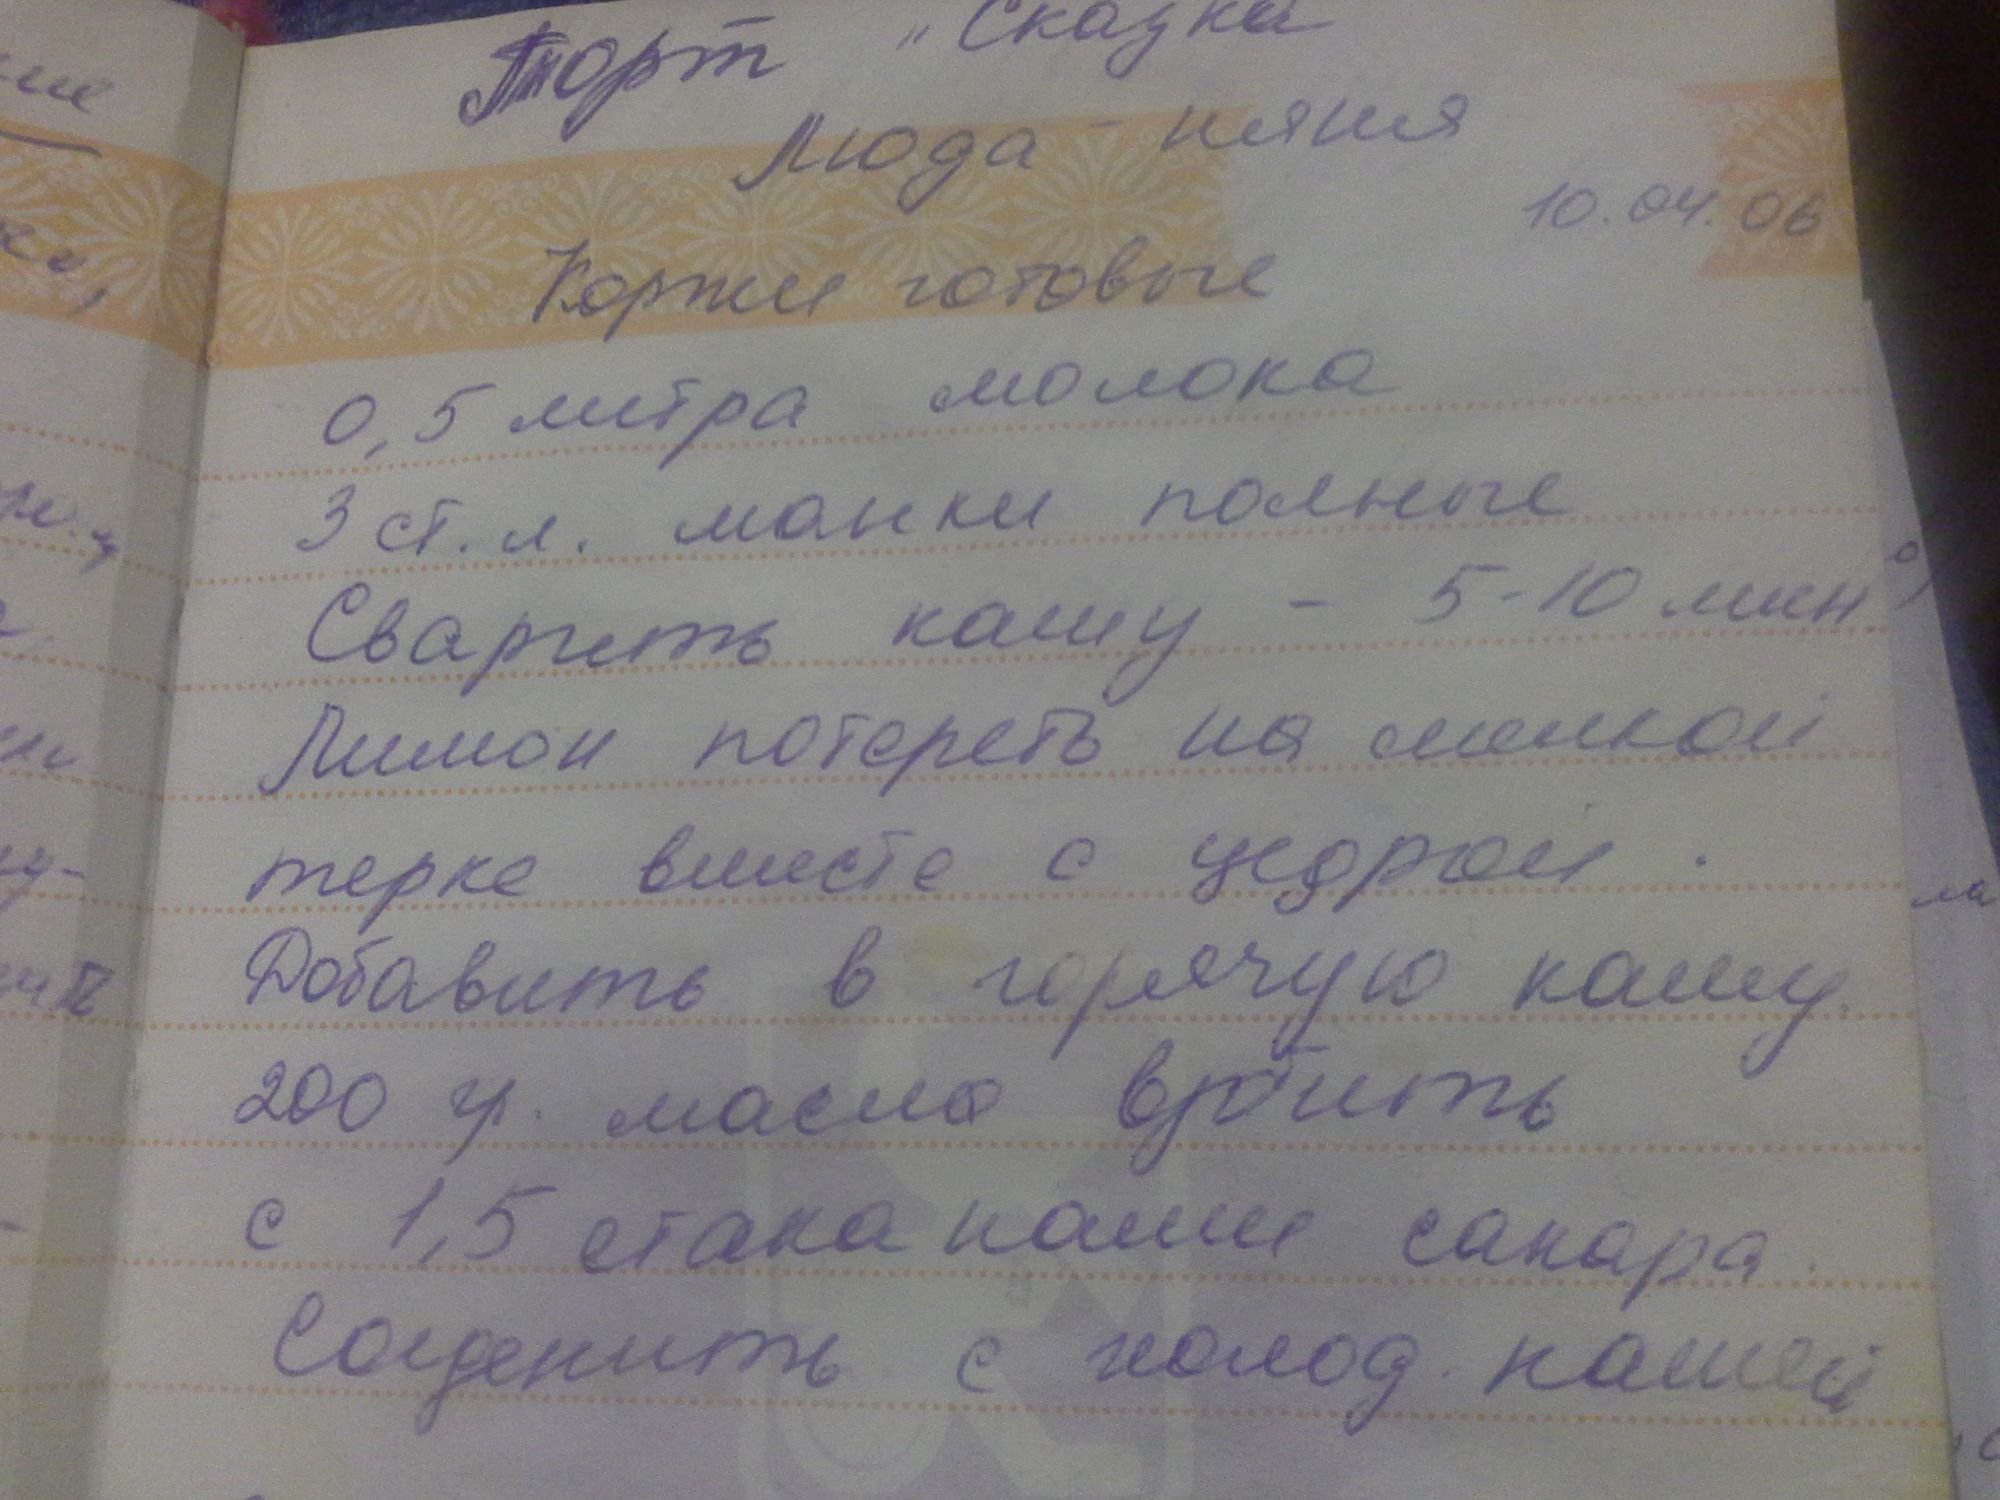 Торт „Сказка
Люда - няня
10.04.06
Коржи готовые
0,5 литра молока
3 ст. л. манки полные
Сварить кашу - 5-10 мин
Лимон потереть на мелкой
терке вместе с цедрой.
Добавить в горячую кашу.
200 гр. масла взбить
с 1,5 стаканами сахара.
Соединить с холод. кашей